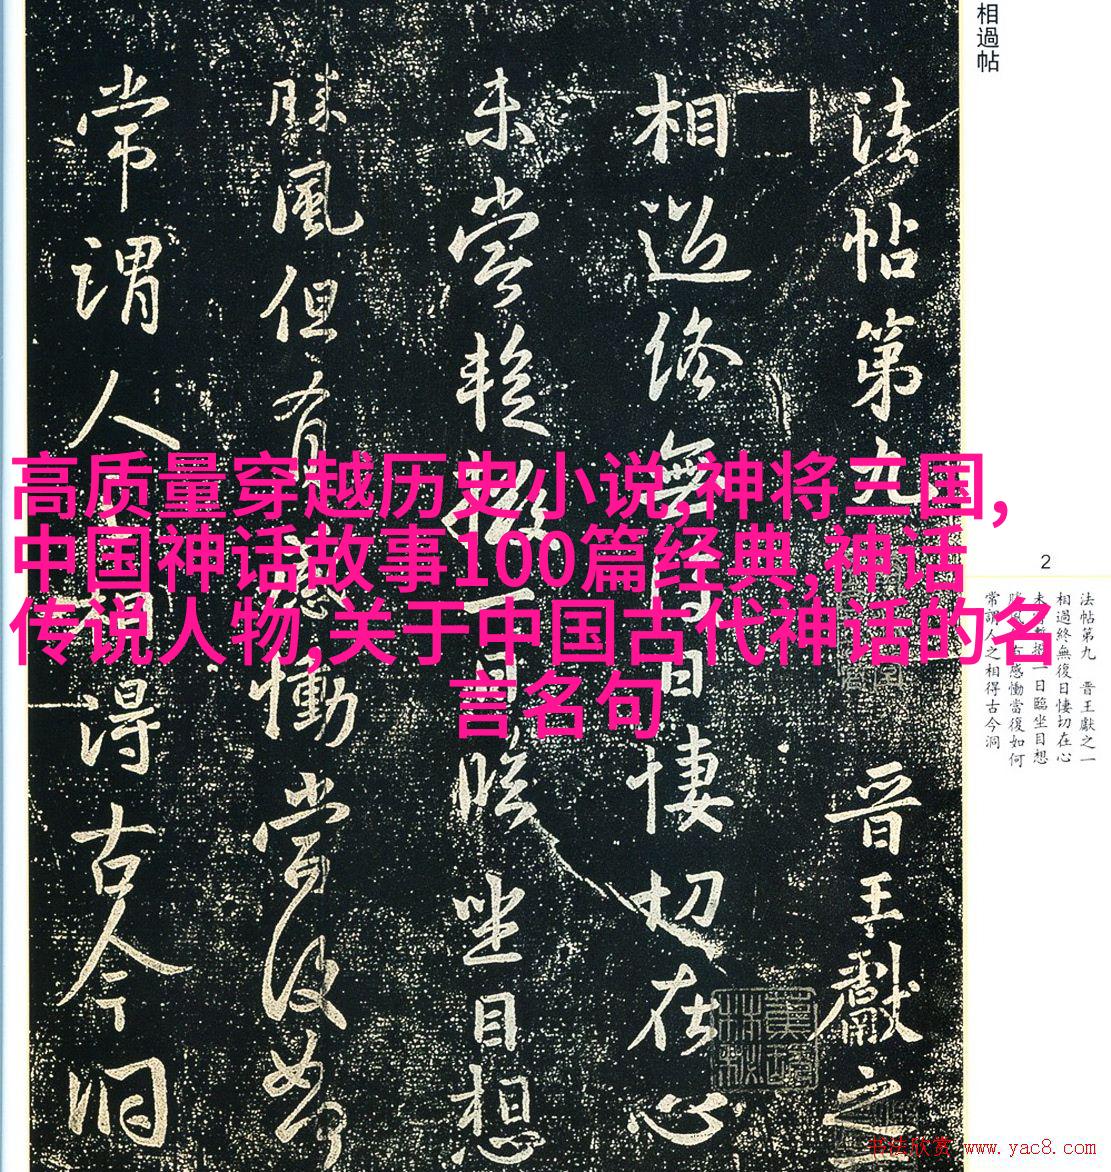 相過帖
法帖第九 晋王獻之
相過終無復日悽切在心
未嘗輟一日臨坐目想
勝風但有感慟當復如何
常謂人之相得古今洞
高质量穿越历史小说,神将三国,
中国神话故事100篇经典,神话
传说人物,关于中国古代神话的名
言名句
2
法帖第九 晉王獻之一
相過終無復日悽切在心
未一日臨坐目想
感慟當復如何
常謂人之相得古今洞
书法欣赏 www.yac8.com